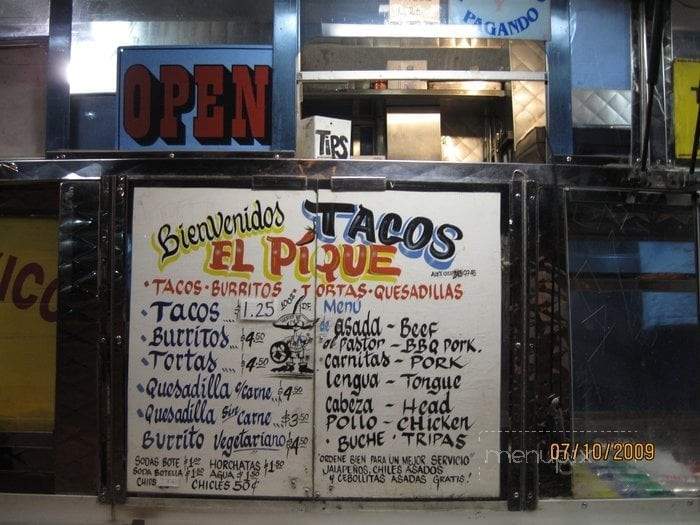 PAGANDO
OPEN
TiPS
BienVenidos TACOS
EL PiQUE
• TACOS • BURRITOS TORTAS • QUESADILLAS
• Tacos .... $1.25
• Burritos ... $4.50
• Tortas .... $4.50
• Quesadilla c/carne .. $4.50
• Quesadilla sin carne .. $3.50
Burrito vegetariano $4.50
SODAS BOTE $1.00 HORCHATAS $1.50
SODA BOTELLA AGUA
CHIPS CHICLES 50¢
Menú
de asada - Beef
al Pastor - BBQ PORK.
carnitas - PORK
lengua - Tongue
cabeza - Head
POLLO - CHicken
• BUCHE • TRIPAS
ORDENE BIEN PARA UN MEJOR SERVICIO
JALAPEÑOS, CHILES ASADOS
y CEBOLLITAS ASADAS GRATIS!
ICO
menupix
07/10/2009